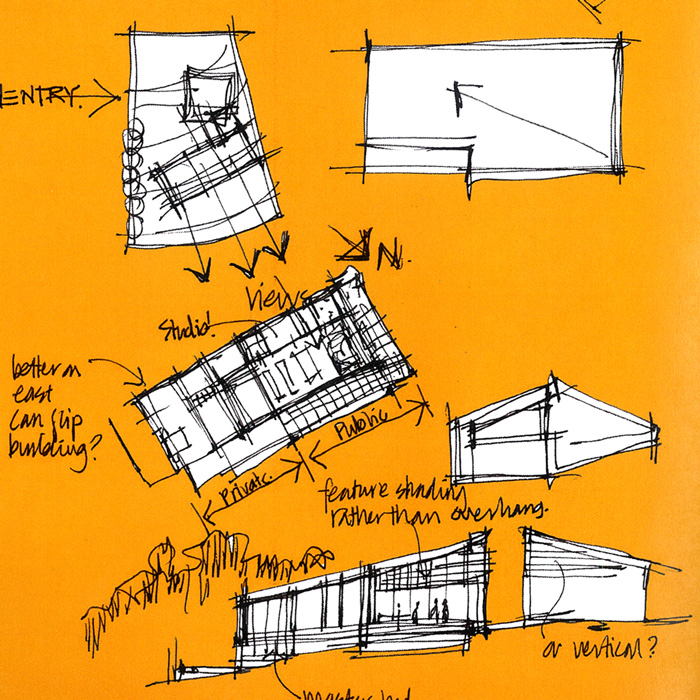 ENTRY.
N.
Views
Studio!
better on
east
can flip
building?
Public
Private.
feature shading
rather than overhang.
or vertical?
master bed